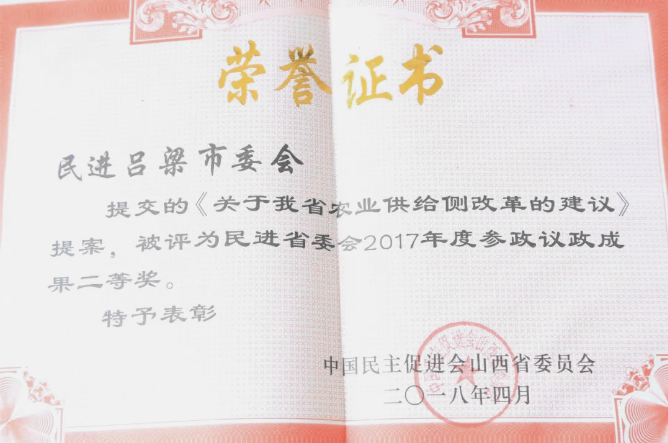 荣誉证书
民进吕梁市委会
提交的《关于我省农业供给侧改革的建议》
提案，被评为民进省委会2017年度参政议政成
果二等奖。
特予表彰
中国民主促进会山西省委员会
二〇一八年四月